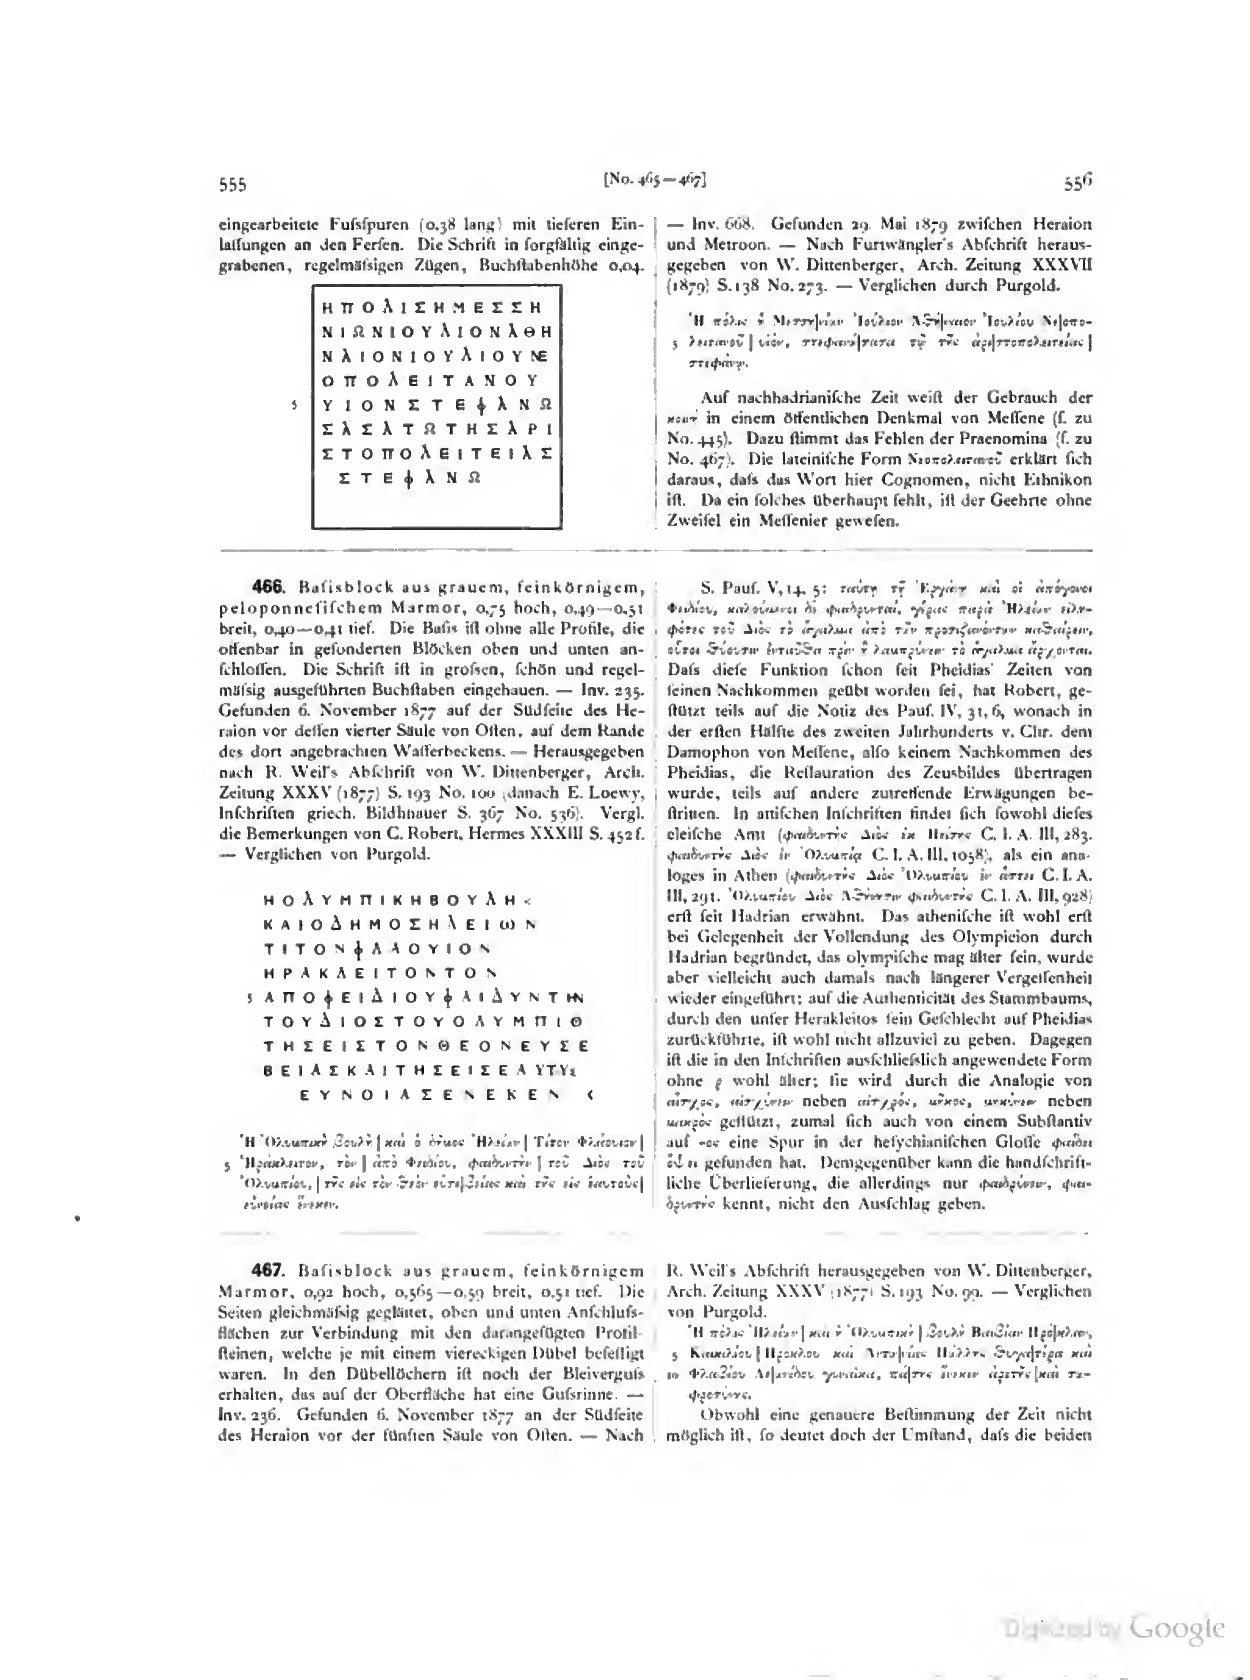 555
[No. 465—467]
556
eingearbeitete Fufsſpuren (0,38 lang) mit tieferen Ein-
laſſungen an den Ferſen. Die Schrift in ſorgfältig einge-
grabenen, regelmäſsigen Zügen, Buchſtabenhöhe 0,04.
Η Π Ο Λ Ι Σ Η Μ Ε Σ Σ Η
Ν Ι Ω Ν Ι Ο Υ Λ Ι Ο Ν Λ Θ Η
Ν Λ Ι Ο Ν Ι Ο Υ Λ Ι Ο Υ ΝΕ
Ο Π Ο Λ Ε Ι Τ Α Ν Ο Υ
5 Υ Ι Ο Ν Σ Τ Ε Φ Λ Ν Ω
Σ Λ Σ Λ Τ Ω Τ Η Σ Λ Ρ Ι
Σ Τ Ο Π Ο Λ Ε Ι Τ Ε Ι Λ Σ
Σ Τ Ε Φ Λ Ν Ω
— Inv. 668. Gefunden 29. Mai 1879 zwiſchen Heraion
und Metroon. — Nach Furtwängler's Abſchrift heraus-
gegeben von W. Dittenberger, Arch. Zeitung XXXVII
(1879) S. 138 No. 273. — Verglichen durch Purgold.
Ἡ πόλις ἡ Μεσσηνίων Ἰούλιον Ἀθή|ναιον Ἰουλίου Νε|οπο-
5 λειτανοῦ | υἱόν, στεφανώ|σασα τῷ τῆς ἀρι|στοπολειτείας |
στεφάνῳ.
Auf nachhadrianiſche Zeit weiſt der Gebrauch der
κοινή in einem öffentlichen Denkmal von Meſſene (ſ. zu
No. 445). Dazu ſtimmt das Fehlen der Praenomina (ſ. zu
No. 467). Die lateiniſche Form Νεοπολειτανοῦ erklärt ſich
daraus, daſs das Wort hier Cognomen, nicht Ethnikon
iſt. Da ein ſolches überhaupt fehlt, iſt der Geehrte ohne
Zweifel ein Meſſenier geweſen.
466. Baſisblock aus grauem, feinkörnigem,
peloponneſiſchem Marmor, 0,75 hoch, 0,49—0,51
breit, 0,40—0,41 tief. Die Baſis iſt ohne alle Profile, die
offenbar in geſonderten Blöcken oben und unten an-
ſchloſſen. Die Schrift iſt in groſsen, ſchön und regel-
mäſsig ausgeführten Buchſtaben eingehauen. — Inv. 235.
Gefunden 6. November 1877 auf der Südſeite des He-
raion vor deſſen vierter Säule von Oſten, auf dem Rande
des dort angebrachten Waſſerbeckens. — Herausgegeben
nach R. Weil's Abſchrift von W. Dittenberger, Arch.
Zeitung XXXV (1877) S. 193 No. 100 (danach E. Loewy,
Inſchriften griech. Bildhauer S. 367 No. 536). Vergl.
die Bemerkungen von C. Robert, Hermes XXXIII S. 452 f.
— Verglichen von Purgold.
Η Ο Λ Υ Μ Π Ι Κ Η Β Ο Υ Λ Η <
Κ Α Ι Ο Δ Η Μ Ο Σ Η Λ Ε Ι ω Ν
Τ Ι Τ Ο Ν Φ Λ Α Ο Υ Ι Ο Ν
Η Ρ Α Κ Λ Ε Ι Τ Ο Ν Τ Ο Ν
5 Α Π Ο Φ Ε Ι Δ Ι Ο Υ Φ Α Ι Δ Υ Ν Τ ΗΝ
Τ Ο Υ Δ Ι Ο Σ Τ Ο Υ Ο Λ Υ Μ Π Ι Ο
Τ Η Σ Ε Ι Σ Τ Ο Ν Θ Ε Ο Ν Ε Υ Σ Ε
Β Ε Ι Α Σ Κ Α Ι Τ Η Σ Ε Ι Σ Ε Α ΥΤΥς
Ε Υ Ν Ο Ι Α Σ Ε Ν Ε Κ Ε Ν <
Ἡ Ὀλυμπικὴ βουλὴ | καὶ ὁ δῆμος Ἠλείων | Τίτον Φλάουιον |
5 Ἡράκλειτον, τὸν | ἀπὸ Φειδίου, φαιδυντὴν | τοῦ Διὸς τοῦ
Ὀλυμπίου, | τῆς εἰς τὸν θεὸν εὐσε|βείας καὶ τῆς εἰς ἑαυτοὺς|
εὐνοίας ἕνεκεν.
S. Pauſ. V, 14, 5: ταύτῃ τῇ Ἐργάνῃ καὶ οἱ ἀπόγονοι
Φειδίου, καλούμενοι δὲ φαιδρυνταί, γέρας παρὰ Ἠλείων εἰλη-
φότες τοῦ Διὸς τὸ ἄγαλμα ἀπὸ τῶν προσιζανόντων καθαίρειν,
οὗτοι θύουσιν ἐνταῦθα πρὶν ἢ λαμπρύνειν τὸ ἄγαλμα ἄρχονται.
Daſs dieſe Funktion ſchon ſeit Pheidias' Zeiten von
ſeinen Nachkommen geübt worden ſei, hat Robert, ge-
ſtützt teils auf die Notiz des Pauſ. IV, 31, 6, wonach in
der erſten Hälfte des zweiten Jahrhunderts v. Chr. dem
Damophon von Meſſene, alſo keinem Nachkommen des
Pheidias, die Reſtauration des Zeusbildes übertragen
wurde, teils auf andere zutreffende Erwägungen be-
ſtritten. In attiſchen Inſchriften findet ſich ſowohl dieſes
eleiſche Amt (φαιδυντὴς Διὸς ἐκ Πείσης C. I. A. III, 283.
φαιδυντὴς Διὸς ἐν Ὀλυμπίᾳ C. I. A. III, 1058), als ein ana-
loges in Athen (φαιδυντὴς Διὸς Ὀλυμπίου ἐν ἄστει C. I. A.
III, 291. Ὀλυμπίου Διὸς Ἀθήνησιν φαιδυντὴς C. I. A. III, 928)
erſt ſeit Hadrian erwähnt. Das atheniſche iſt wohl erſt
bei Gelegenheit der Vollendung des Olympieion durch
Hadrian begründet, das olympiſche mag älter ſein, wurde
aber vielleicht auch damals nach längerer Vergeſſenheit
wieder eingeführt; auf die Authenticität des Stammbaums,
durch den unſer Herakleitos ſein Geſchlecht auf Pheidias
zurückführte, iſt wohl nicht allzuviel zu geben. Dagegen
iſt die in den Inſchriften ausſchlieſslich angewendete Form
ohne ρ wohl älter; ſie wird durch die Analogie von
αἶσχος, αἰσχύνειν neben αἰσχρός, μῆκος, μηκύνειν neben
μακρός geſtützt, zumal ſich auch von einem Subſtantiv
auf -ος eine Spur in der heſychianiſchen Gloſſe φαιδει
ὄψει gefunden hat. Demgegenüber kann die handſchrift-
liche Überlieferung, die allerdings nur φαιδρύνειν, φαι-
δρυντής kennt, nicht den Ausſchlag geben.
467. Baſisblock aus grauem, feinkörnigem
Marmor, 0,92 hoch, 0,565—0,59 breit, 0,51 tief. Die
Seiten gleichmäſsig geglättet, oben und unten Anſchluſs-
flächen zur Verbindung mit den darangefügten Profil-
ſteinen, welche je mit einem viereckigen Dübel befeſtigt
waren. In den Dübellöchern iſt noch der Bleiverguſs
erhalten, das auf der Oberfläche hat eine Guſsrinne. —
Inv. 236. Gefunden 6. November 1877 an der Südſeite
des Heraion vor der fünften Säule von Oſten. — Nach
R. Weil's Abſchrift herausgegeben von W. Dittenberger,
Arch. Zeitung XXXV (1877) S. 193 No. 99. — Verglichen
von Purgold.
Ἡ πόλις Ἠλείων | καὶ ἡ Ὀλυμπικὴ | βουλὴ Βαιβίαν Πρό|κλαν,
5 Καικιλίου | Πρόκλου καὶ Ἀντω|νίας Πώλλης θυγα|τέρα καὶ
10 Φλαβίου Λε|ωνίδου γυναῖκα, πά|σης ἕνεκεν ἀρετῆς |καὶ σω-
φροσύνης.
Obwohl eine genauere Beſtimmung der Zeit nicht
möglich iſt, ſo deutet doch der Umſtand, daſs die beiden
Digitized by Google